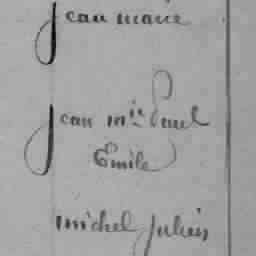 jean marie
jean m^ie Paul
Emile
michel julien